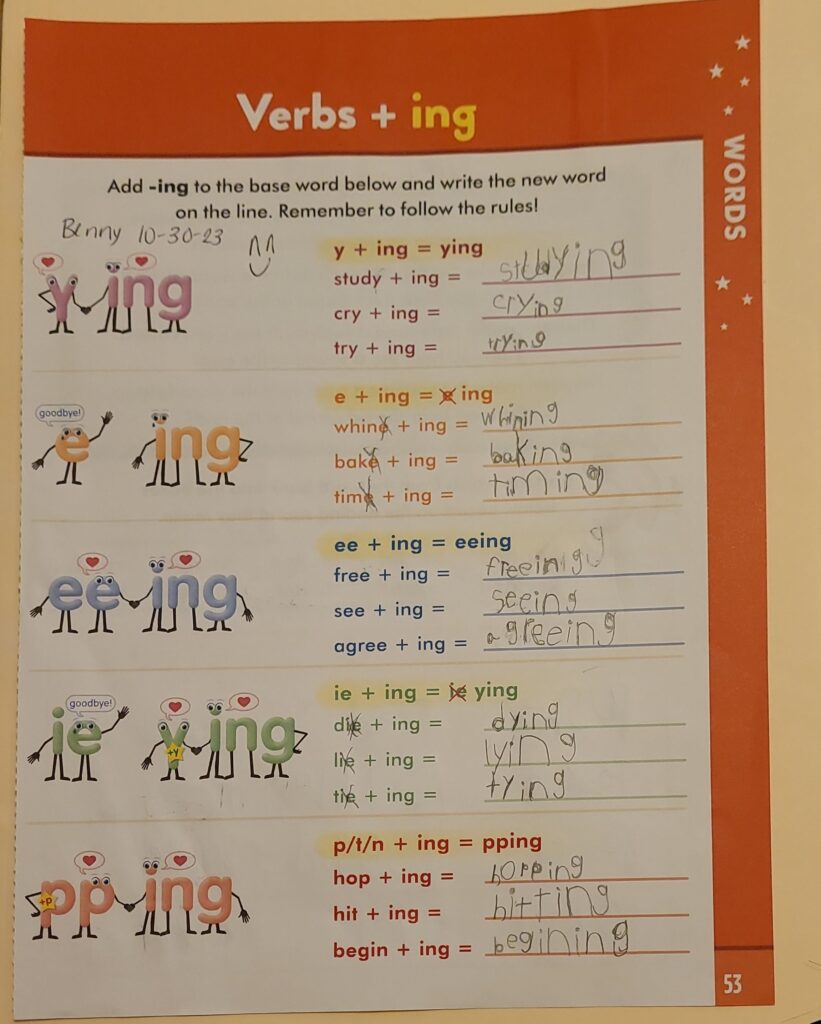 Verbs + ing
WORDS
Add -ing to the base word below and write the new word
on the line. Remember to follow the rules!
Benny 10-30-23
y + ing = ying
study + ing = studying
cry + ing = crying
try + ing = trying
y ing
e + ing = e ing
goodbye!
whine + ing = whining
bake + ing = baking
time + ing = timing
e ing
ee + ing = eeing
free + ing = freeing
see + ing = seeing
agree + ing = agreeing
ee ing
ie + ing = ie ying
goodbye!
die + ing = dying
lie + ing = lying
tie + ing = tying
ie y ing
+y
p/t/n + ing = pping
hop + ing = hopping
hit + ing = hitting
begin + ing = begining
pp ing
+p
53